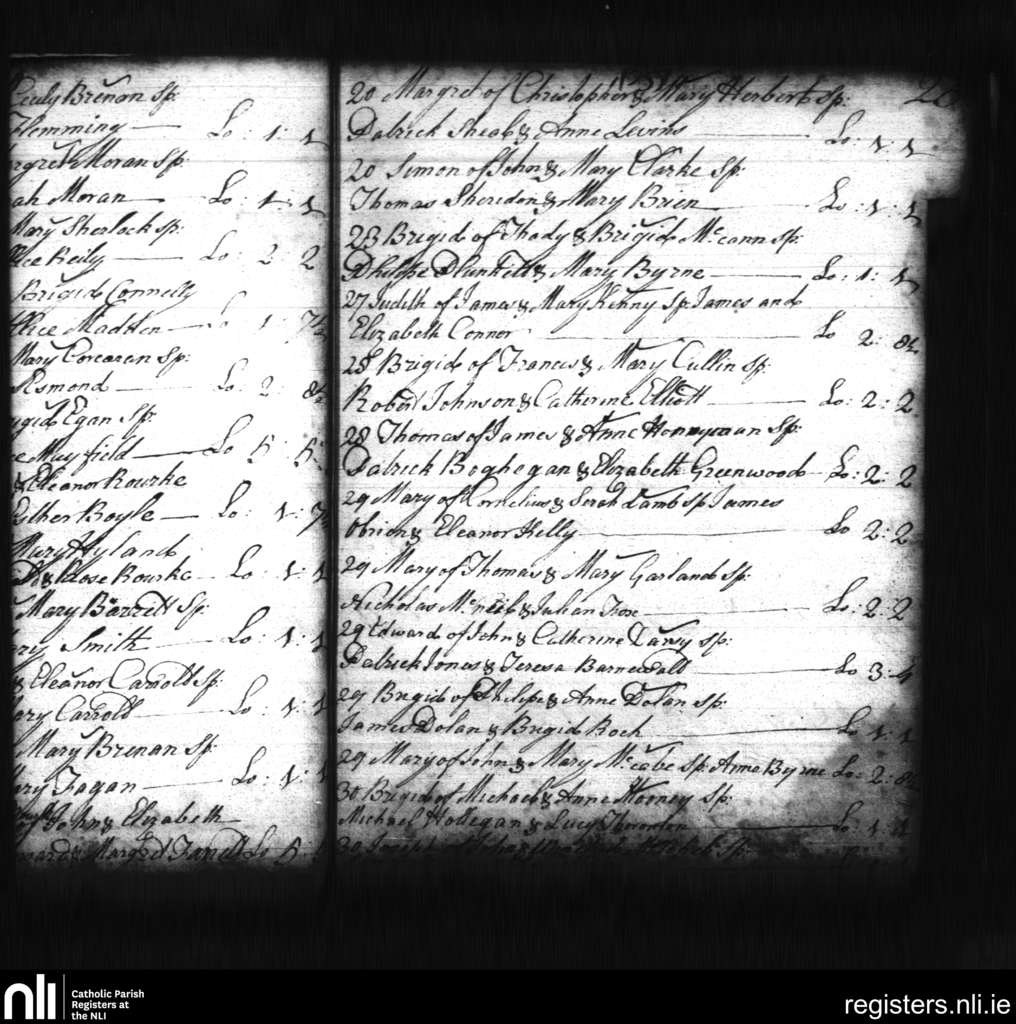 Brenan Sp:
Flemming — Lo: 1: 1
Moran Sp:
ah Moran — Lo: 1: 1
Mary Sherlock Sp:
Reily — Lo: 2 2
Brigid Connelly
Allice Madden — Lo 1: 7½
Mary Corcoran Sp:
Esmond — Lo: 2: 8½
Egan Sp:
Mayfield — Lo 5: 5
& Eleanor Rourke
Esther Boyle — Lo: 1: 7½
Mary Hyland
& Rose Rourke — Lo: 1: 1
Mary Barrett Sp:
ary Smith — Lo: 1: 1
& Eleanor Carroll Sp:
ary Carroll — Lo: 1: 1
Mary Brenan Sp:
ary Fagan — Lo: 1: 1
of John & Elizabeth
Margret Lo 5:
20 Margret of Christopher & Mary Herbert Sp:
Patrick Sheal & Anne Levins — Lo: 1: 1
20 Simon of John & Mary Clarke Sp:
Thomas Sheridon & Mary Brien — Lo: 1: 1
23 Brigid of Thady & Brigid Mc.cann Sp:
Philipe Plunkett & Mary Byrne — Lo: 1: 1
27 Judith of James & Mary Kenny Sp: James and
Elizabeth Connor — Lo 2: 8½
28 Brigid of Francis & Mary Cullin Sp:
Robert Johnson & Catherine Elliott — Lo: 2: 2
28 Thomas of James & Anne Honnyman Sp:
Patrick Boghegan & Elizabeth Greenwood — Lo: 2: 2
29 Mary of Cornelius & Sarah Lamb Sp James
Obrien & Eleanor Kelly — Lo 2: 2
29 Mary of Thomas & Mary Garland Sp:
Nicholas Mc.neil & Julian — Lo: 2: 2
29 Edward of John & Catherine Darsy Sp:
Patrick Jones & Teresa Barnewall — Lo 3: 4
29 Brigid of Philipe & Anne Dolan Sp:
James Dolan & Brigid Roch — Lo 1: 1
29 Mary of John & Mary Mc.cabe Sp: Anne Byrne Lo: 2: 8½
30 Brigid of Michael & Anne Mooney Sp:
Michael Hodegan & Lucy — Lo: 1
30 Joseph of Sp:
nli
Catholic Parish
Registers at
the NLI
registers.nli.ie